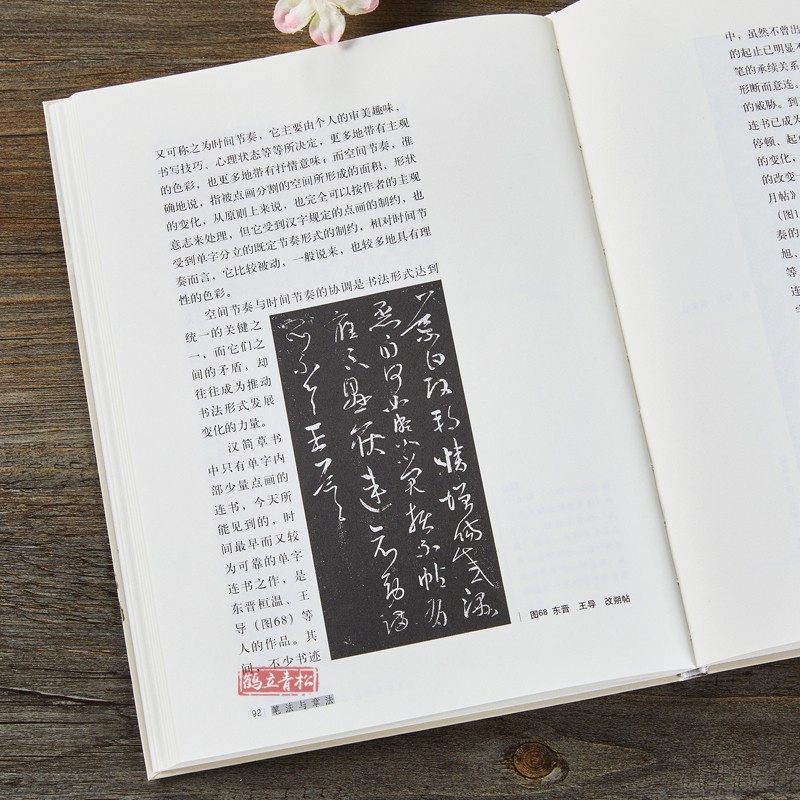 又可称之为时间节奏，它主要由个人的审美趣味、
书写技巧、心理状态等等所决定，更多地带有主观
的色彩，也更多地带有抒情意味；而空间节奏，准
确地说，指被点画分割的空间所形成的面积、形状
的变化，从原则上来说，也完全可以按作者的主观
意志来处理，但它受到汉字规定的点画的制约，也
受到单字分立的既定节奏形式的制约，相对时间节
奏而言，它比较被动，一般说来，也较多地具有理
性的色彩。
空间节奏与时间节奏的协调是书法形式达到
统一的关键之
一，而它们之
间的矛盾，却
往往成为推动
书法形式发展
变化的力量。
汉简草书
中只有单字内
部少量点画的
连书，今天所
能见到的，时
间最早而又较
为可靠的单字
连书之作，是
东晋桓温、王
导（图68）等
人的作品。其
间，不少书迹
图68 东晋 王导 改朔帖
鹤立青松
92 笔法与章法
中，虽然不曾出
的起止已明显不
笔的承续关系
形断而意连。
的威胁。到
连书已成为
停顿、起
的变化，
的改变一
月帖》
（图1
奏的
旭、
等
连